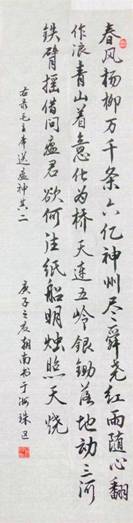 春风杨柳万千条六亿神州尽舜尧红雨随心翻
作浪青山着意化为桥天连五岭银锄落地动三河
铁臂摇借问瘟君欲何往纸船明烛照天烧
右录毛主席送瘟神其二
庚子之夏朝南书于海珠区